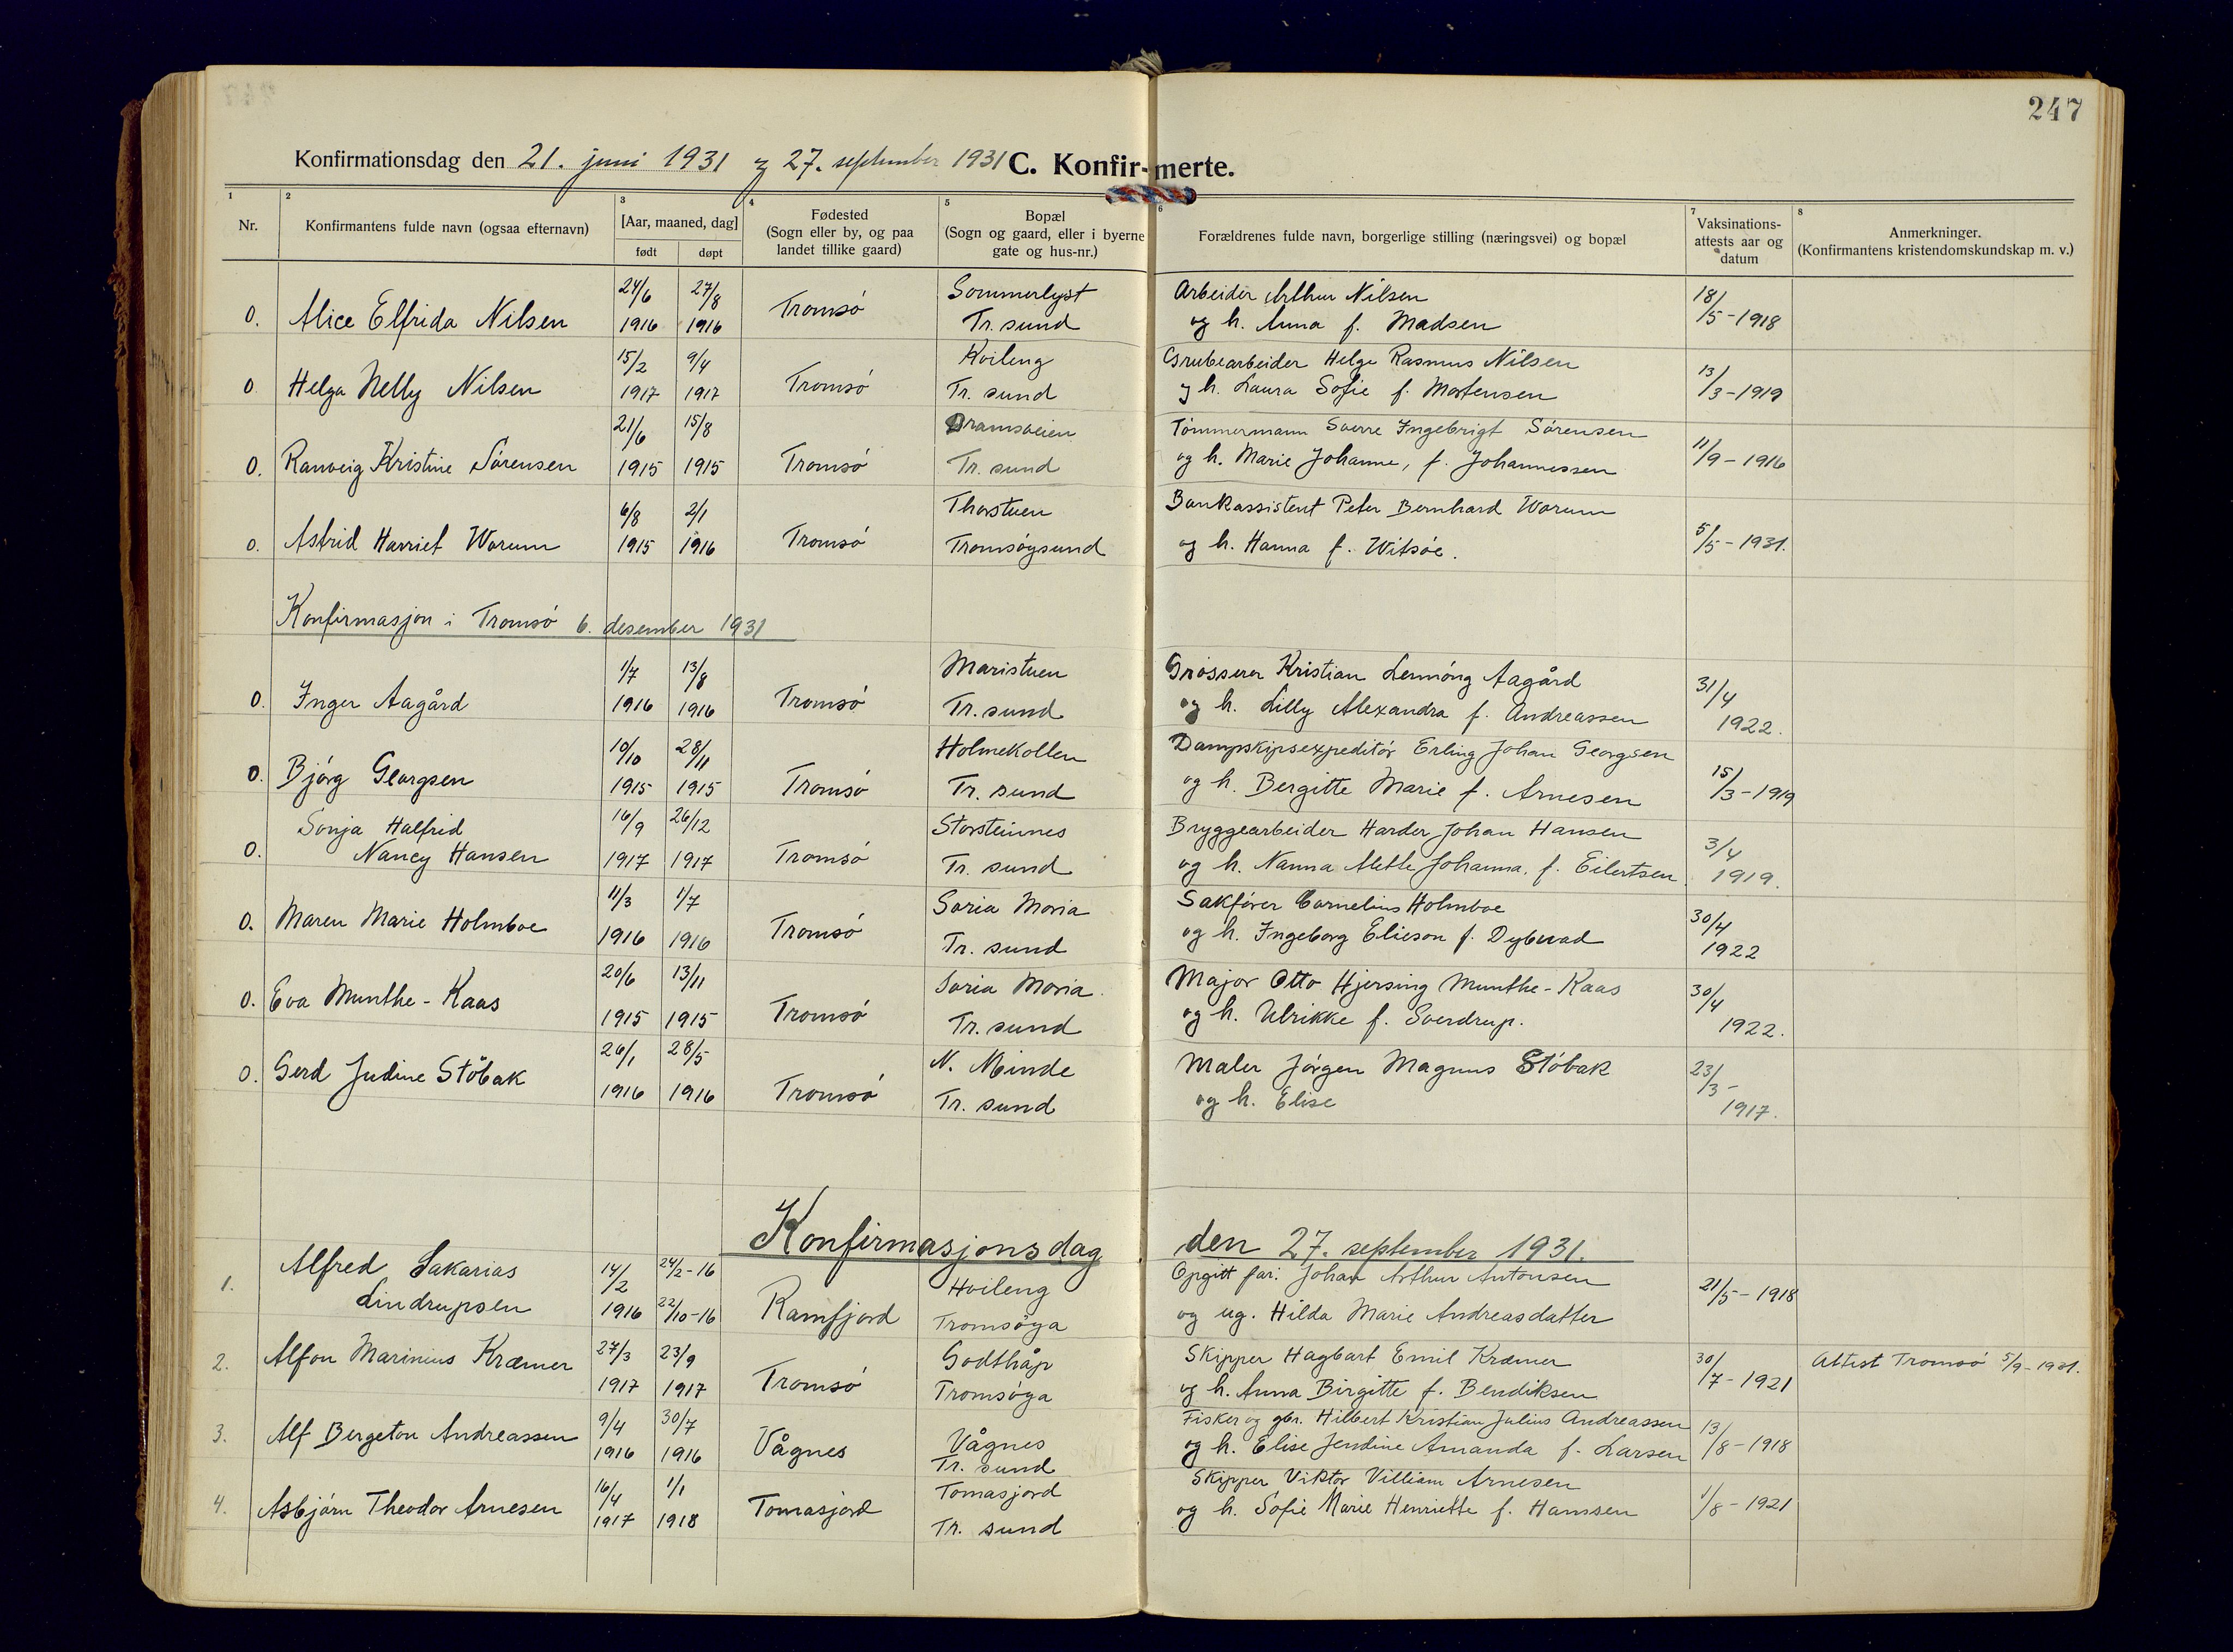 247
Konfirmationsdag den 21. juni 1931 og 27. september 1931 C. Konfir-merte.
1 2 3 4 5 6 7 8
Nr.
Konfirmantens fulde navn (ogsaa efternavn)
[Aar, maaned, dag]
født døpt
Fødested
(Sogn eller by, og paa
landet tillike gaard)
Bopæl
(Sogn og gaard, eller i byerne
gate og hus-nr.)
Forældrenes fulde navn, borgerlige stilling (næringsvei) og bopæl
Vaksinations-
attests aar og
datum
Anmerkninger.
(Konfirmantens kristendomskundskap m. v.)
24/6 27/8 Sommerlyst Arbeider Arthur Nilsen 18/5-1918
0. Alice Elfrida Nilsen 1916 1916 Tromsö Tr. sund og h. Anna f. Madsen
15/2 9/4 Kvileng Grubearbeider Helge Rasmus Nilsen
0 Helga Nelly Nilsen 1917 1917 Tromsö Tr. sund og h. Laura Sofie f. Mortensen 13/3-1919
21/6 15/8 Dramsveien Tömmermann Sverre Ingebrigt Sörensen
0. Ranveig Kristine Sörensen 1915 1915 Tromsö Tr. sund og h. Marie Johanne, f. Johannessen 11/9-1916
6/8 2/1 Thorstuen Bankassistent Peter Bernhard Worum
0. Astrid Harriet Worum 1915 1916 Tromsö Tromsöysund og h. Hanna f. Witsöe. 5/5-1931.
Konfirmasjon i Tromsö 6. desember 1931
1/7 13/8 Maristuen Grosserer Kristian Lennöng Aagård 31/4
0. Inger Aagård 1916 1916 Tromsö Tr. sund og h. Lilly Alexandra f. Andreassen 1922.
10/10 28/11 Holmekollen Dampskipsexpeditör Erling Johan Georgsen
0. Bjórg Georgsen 1915 1915 Tromsö Tr. sund og h. Bergitte Marie f. Arnesen 15/3-1919
Sonja Halfrid 16/9 26/12 Storsteinnes Bryggearbeider Harder Johan Hansen 3/4
0. Nancy Hansen 1917 1917 Tromsö Tr. sund og h. Nanna Mette Johanna, f. Eilertsen 1919.
11/3 1/7 Soria Moria Sakförer Cornelius Holmboe 30/4
0. Maren Marie Holmboe 1916 1916 Tromsö Tr. sund og h. Ingeborg Elieson f. Dybwad 1922
20/6 13/11 Soria Moria Major Otto Hjersing Munthe-Kaas 30/4
0. Eva Munthe-Kaas 1915 1915 Tromsö Tr. sund og h. Ulrikke f. Sverdrup. 1922.
26/1 28/5 N. Minde Maler Jörgen Magnus Stöbak 23/3-
0. Gerd Judine Stöbak 1916 1916 Tromsö Tr. sund og h. Elise 1917.
Konfirmasjonsdag den 27. september 1931.
Alfred Sakarias 14/2 24/2-16 Hvileng Opgitt far: Johan Arthur Antonsen
1. Lindrupsen 1916 22/10-16 Ramfjord Tromsöya og ug. Hilda Marie Andreasdatter 21/5-1918
2. Alfon Marinius Kræmer 27/3 23/9 Godthåp Skipper Hagbart Emil Kræmer 30/7-1921 Attest Tromsö 5/9-1931.
1917 1917 Tromsö Tromsöya og h. Anna Birgitte f. Bendiksen
9/4 30/7 Fisker og gbr. Hilbert Kristian Julius Andreassen
3. Alf Bergeton Andreassen 1916 1916 Vågnes Vågnes og h. Elise Jendine Amanda f. Larsen 13/8-1918
Tr. sund
16/4 1/1 Tomasjord Skipper Viktor Villiam Arnesen
4. Asbjörn Theodor Arnesen 1917 1918 Tomasjord Tr. sund og h. Sofie Marie Henriette f. Hanssen 1/8-1921